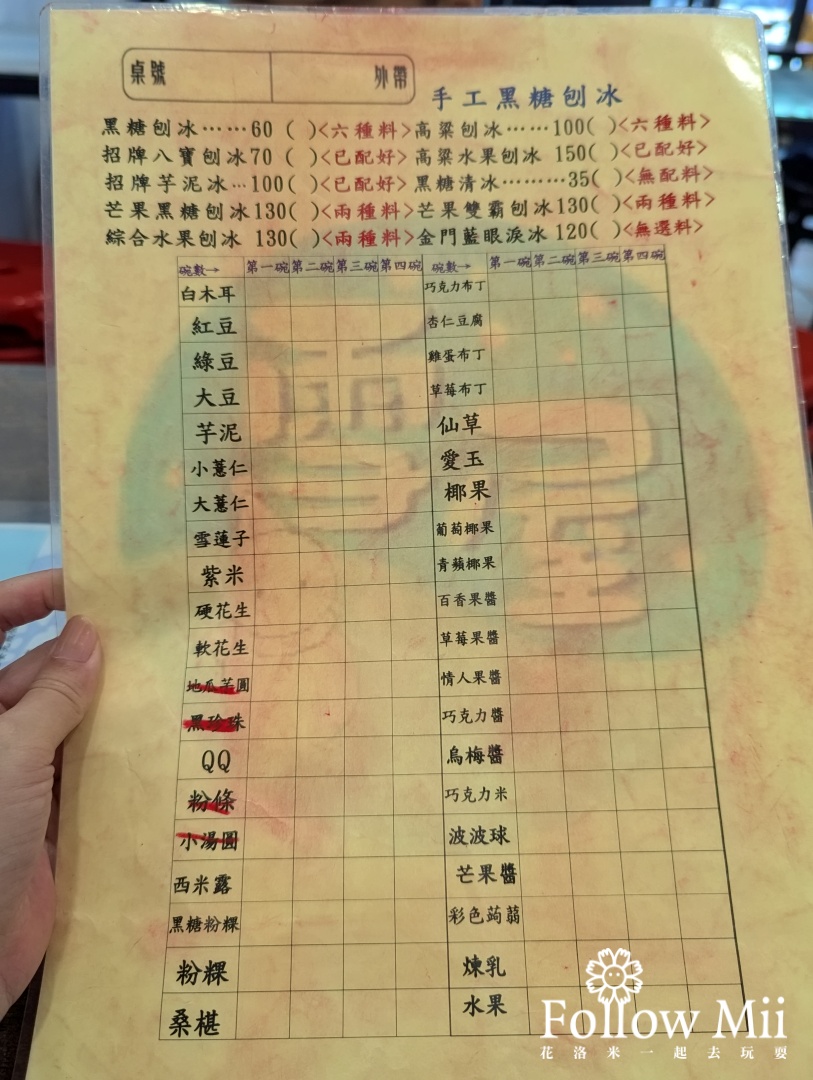 桌號 外帶
手工黑糖刨冰
黑糖刨冰……60 ( )<六種料> 高粱刨冰……100( )<六種料>
招牌八寶刨冰70 ( )<已配好> 高粱水果刨冰 150( )<已配好>
招牌芋泥冰…100( )<已配好> 黑糖清冰………35( )<無配料>
芒果黑糖刨冰130( )<兩種料> 芒果雙霸刨冰130( )<兩種料>
綜合水果刨冰 130( )<兩種料> 金門藍眼淚冰 120( )<無選料>
碗數→ 第一碗 第二碗 第三碗 第四碗 碗數→ 第一碗 第二碗 第三碗 第四碗
白木耳 巧克力布丁
紅豆 杏仁豆腐
綠豆 雞蛋布丁
大豆 草莓布丁
芋泥 仙草
小薏仁 愛玉
大薏仁 椰果
雪蓮子 葡萄椰果
紫米 青蘋椰果
硬花生 百香果醬
軟花生 草莓果醬
地瓜芋圓 情人果醬
黑珍珠 巧克力醬
QQ 烏梅醬
粉條 巧克力米
小湯圓 波波球
西米露 芒果醬
黑糖粉粿 彩色蒟蒻
粉粿 煉乳
桑椹 水果
Follow Mii
花洛米一起去玩耍